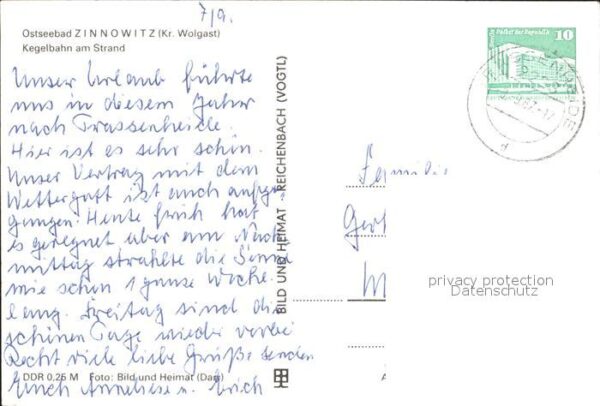 7/9.
Ostseebad ZINNOWITZ (Kr. Wolgast)
Kegelbahn am Strand
Unser Urlaub führte
uns in diesem Jahr
nach Trassenheide.
Hier ist es sehr schön.
Unser Vertrag mit dem
Wettergott ist auch aufge-
gangen. Heute früh hat
es geregnet aber am Nach
mittag strahlte die Sonne
wie schon 1 ganze Woche
lang. Freitag sind die
schönen Tage wieder vorbei
Recht viele liebe Grüße senden
Euch Anneliese u. Erich
DDR 0,25 M Foto: Bild und Heimat (Dan)
BILD UND HEIMAT REICHENBACH (VOGTL)
10
Palast der Republik
Familie
privacy protection
Datenschutz